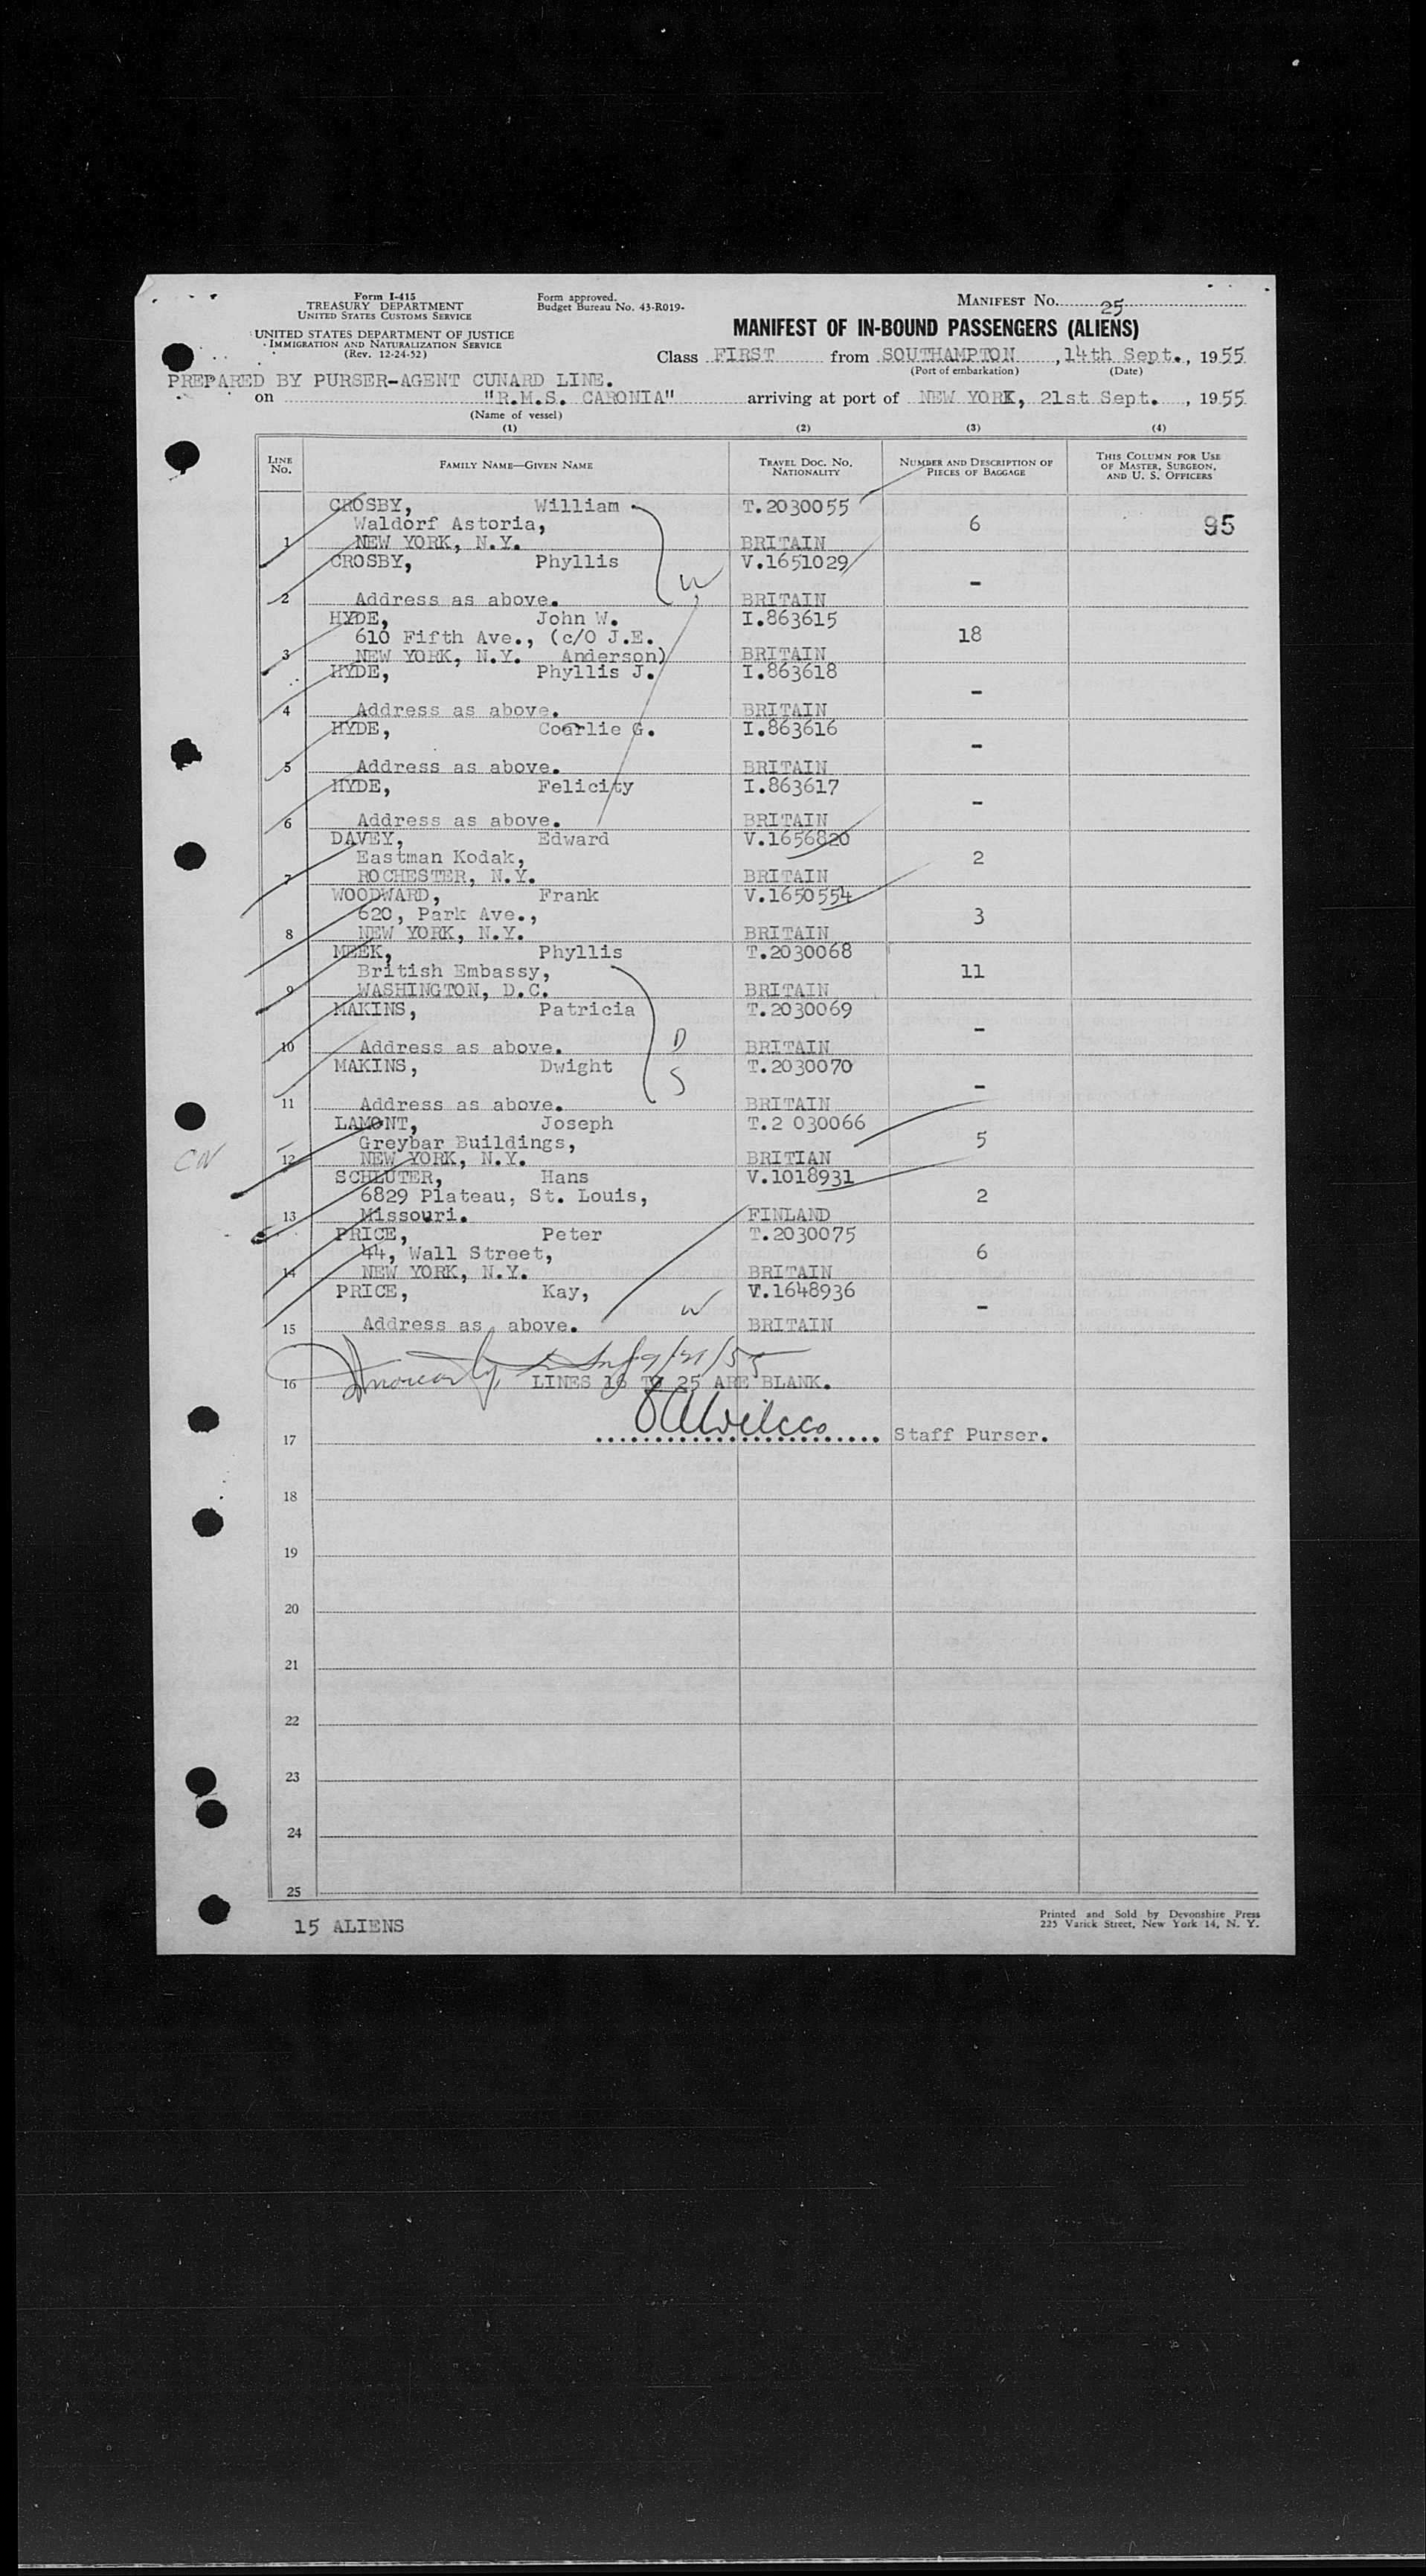 Form I-415
TREASURY DEPARTMENT
UNITED STATES CUSTOMS SERVICE
UNITED STATES DEPARTMENT OF JUSTICE
IMMIGRATION AND NATURALIZATION SERVICE
(Rev. 12-24-52)
Form approved.
Budget Bureau No. 43-R019-
MANIFEST NO. 25
MANIFEST OF IN-BOUND PASSENGERS (ALIENS)
Class FIRST from SOUTHAMPTON, 14th Sept., 1955
(Port of embarkation) (Date)
PREPARED BY PURSER-AGENT CUNARD LINE.
on "R.M.S. CARONIA" arriving at port of NEW YORK, 21st Sept., 1955
(Name of vessel)
(1) (2) (3) (4)
LINE NO. FAMILY NAME—GIVEN NAME TRAVEL DOC. NO. NATIONALITY NUMBER AND DESCRIPTION OF PIECES OF BAGGAGE THIS COLUMN FOR USE OF MASTER, SURGEON, AND U. S. OFFICERS
CROSBY, William T.2030055
Waldorf Astoria, 6 95
1 NEW YORK, N.Y. BRITAIN
CROSBY, Phyllis V.1651029
-
W
2 Address as above. BRITAIN
HYDE, John W. I.863615
610 Fifth Ave., (c/O J.E. 18
3 NEW YORK, N.Y. Anderson) BRITAIN
HYDE, Phyllis J. I.863618
-
4 Address as above. BRITAIN
HYDE, Coarlie G. I.863616
-
5 Address as above. BRITAIN
HYDE, Felicity I.863617
-
6 Address as above. BRITAIN
DAVEY, Edward V.1656820
Eastman Kodak, 2
7 ROCHESTER, N.Y. BRITAIN
WOODWARD, Frank V.1650554
620, Park Ave., 3
8 NEW YORK, N.Y. BRITAIN
MEEK, Phyllis T.2030068
British Embassy, 11
9 WASHINGTON, D.C. BRITAIN
MAKINS, Patricia T.2030069
-
10 Address as above. D BRITAIN
MAKINS, Dwight T.2030070
S -
11 Address as above. BRITAIN
LAMONT, Joseph T.2 030066
Greybar Buildings, 5
CW 12 NEW YORK, N.Y. BRITIAN
SCHLUTER, Hans V.1018931
6829 Plateau, St. Louis, 2
13 Missouri. FINLAND
PRICE, Peter T.2030075
44, Wall Street, 6
14 NEW YORK, N.Y. BRITAIN
PRICE, Kay, V.1648936
W -
15 Address as above. BRITAIN
9/21/55
16 LINES 16 TO 25 ARE BLANK.
17 Staff Purser.
18
19
20
21
22
23
24
25
15 ALIENS
Printed and Sold by Devonshire Press
225 Varick Street, New York 14, N. Y.